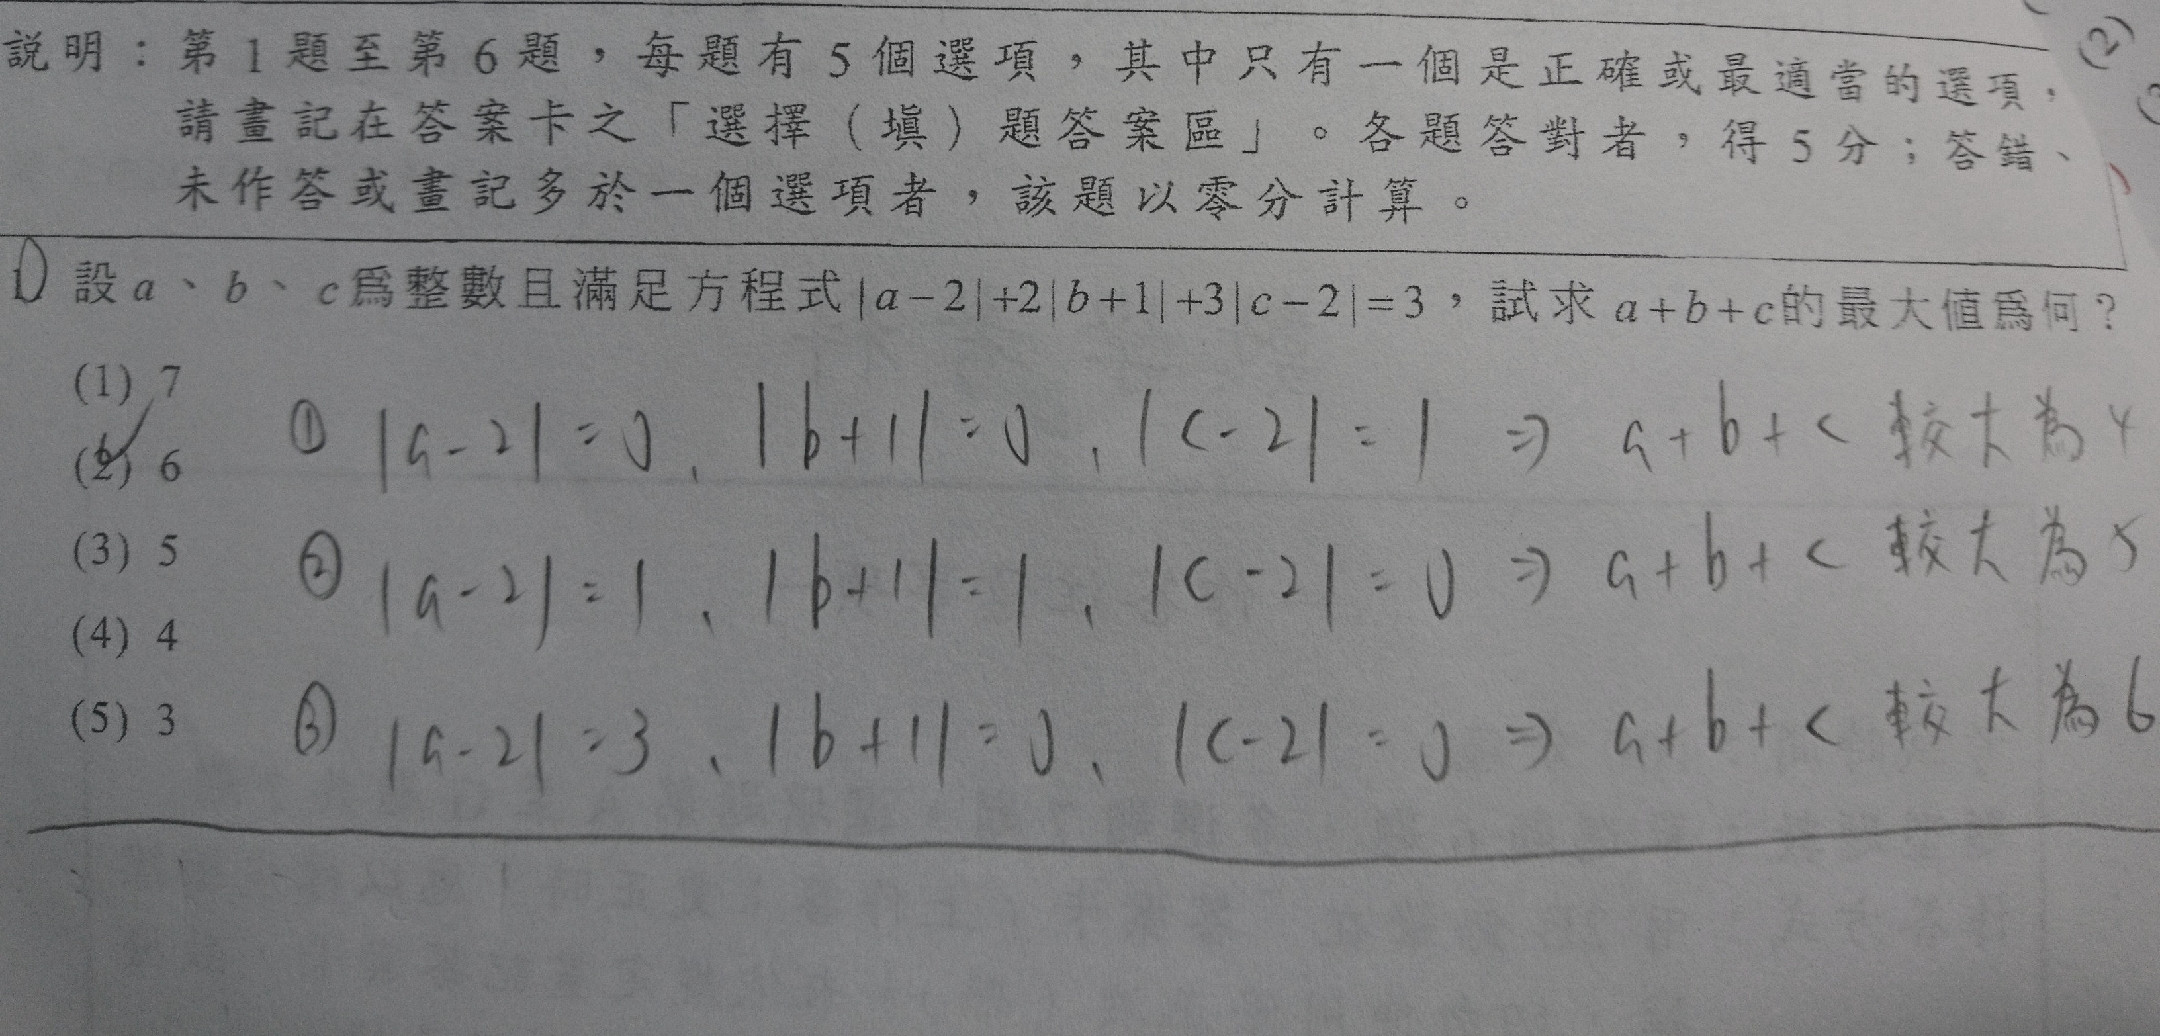 說明：第1題至第6題，每題有5個選項，其中只有一個是正確或最適當的選項，
請畫記在答案卡之「選擇（塡）題答案區」。各題答對者，得5分；答錯、
未作答或畫記多於一個選項者，該題以零分計算。
1) 設a、b、c爲整數且滿足方程式|a-2|+2|b+1|+3|c-2|=3，試求a+b+c的最大值爲何？
(1) 7
(2) 6
(3) 5
(4) 4
(5) 3
① |a-2|=0、|b+1|=0、|c-2|=1 ⇒ a+b+c 較大為4
② |a-2|=1、|b+1|=1、|c-2|=0 ⇒ a+b+c 較大為5
③ |a-2|=3、|b+1|=0、|c-2|=0 ⇒ a+b+c 較大為6
(2)